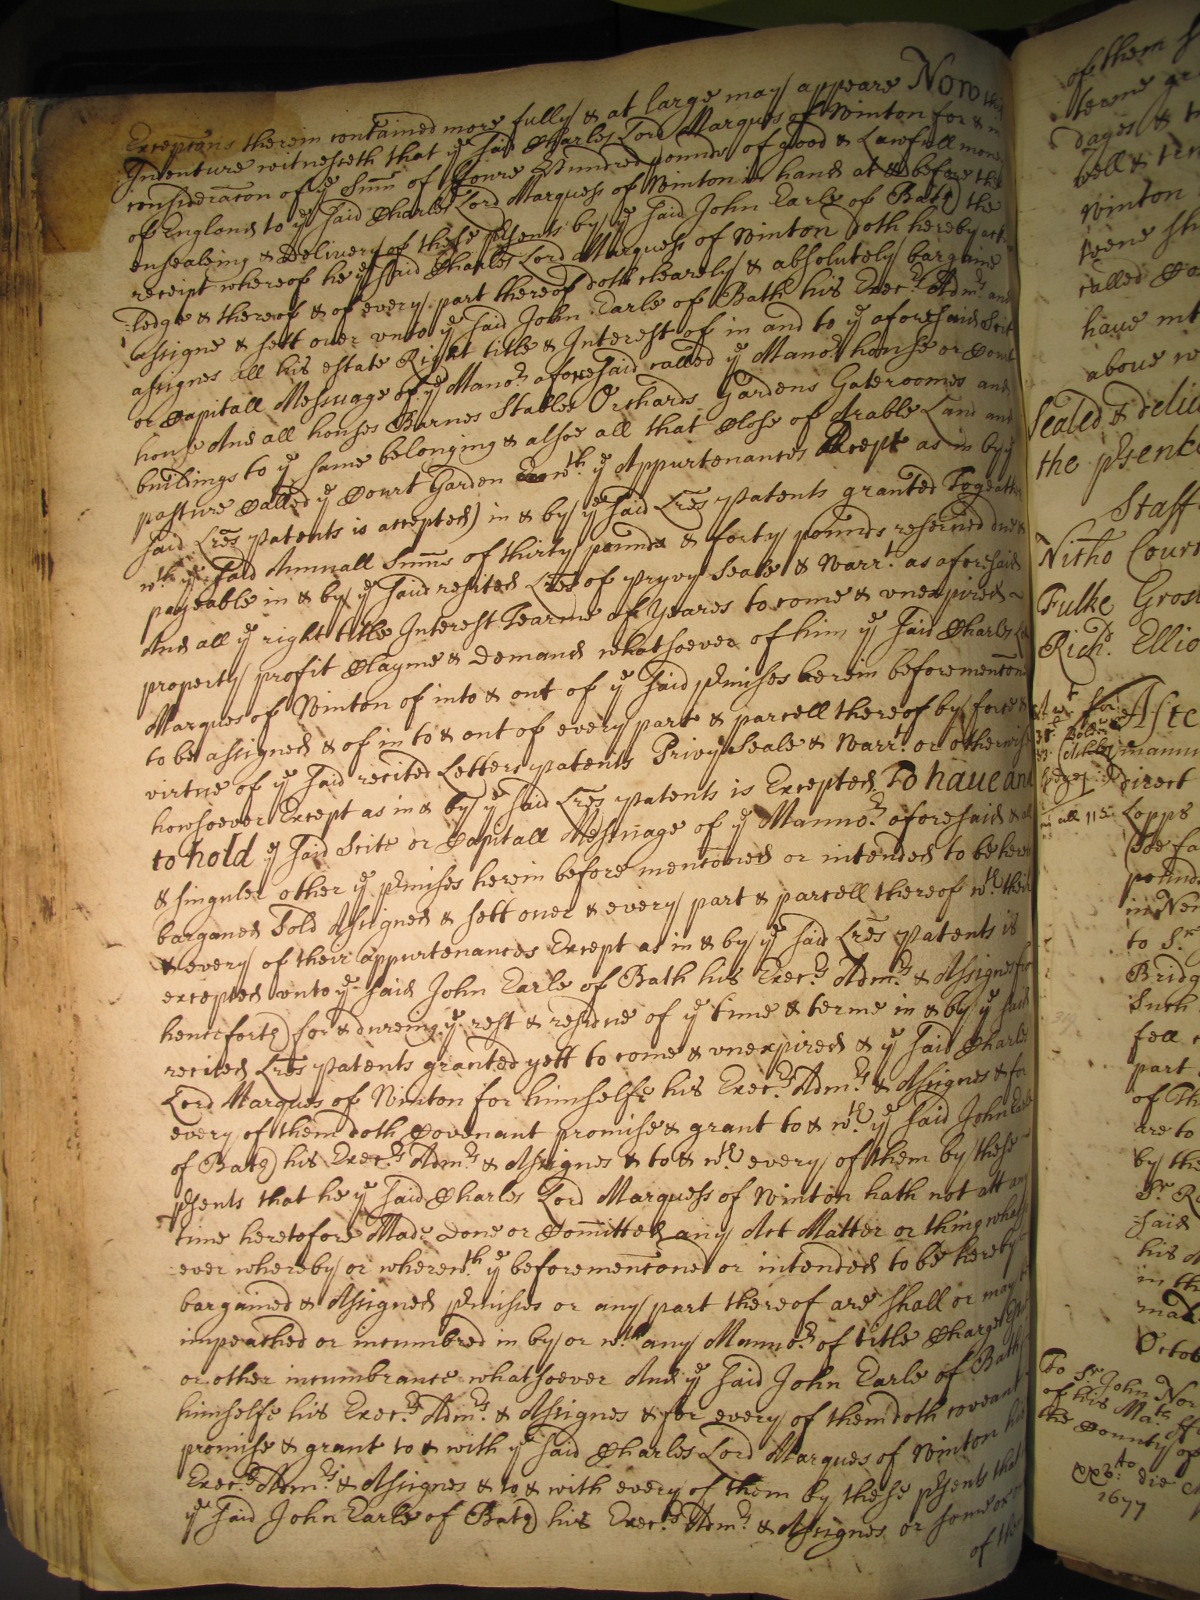 Excepc̃ons therein contained more fully & at large may appeare Now this
Indenture witnesseth that ye said Charles Lord Marques of Winton for & in
consideracon of ye Summ of Foure Hundred pounds of good & Lawfull money
of England to ye said Charles Lord Marquess of Winton in hand at & before the
ensealeing & Delivery of these p̃sents by ye said John Earle of Bath the
receipt whereof he ye said Charles Lord Marquess of Winton doth hereby ack-
-ledge & thereof & of every part thereof doth clearely & absolutely bargaine
assigne & sett over vnto ye said John Earle of Bath his Execrs Admrs and
assignes all his estate Right title & Interest of in and to ye aforesaid Scit
or Capitall Messuage of ye Manor aforesaid called ye Manor house or Court
house And all houses Barnes Stables Orchards Gardens Gateroomes and
buildings to ye same belonging & alsoe all that Close of Arable Land and
pasture Called ye Court Garden wth ye Appurtenances Except as in by ye
said Lr̃es Patents is accepted) in & by ye said Lr̃es Patents granted Togeather
wth ye said Annuall Summs of thirty pounds & forty pounds reserved due &
payeable in & by ye said recited Lr̃es of Pryvy Seale & Warrt as aforesaid
And all ye right title Interest Tearme of Yeares to come & vnexpired
property profit Clayme & Demand whatsoever of him ye said Charles Lo
Marques of Winton of into & out of ye said p̃mises herein beforemencõn
to be assigned & of in to & out of every part & parcell thereof by force &
virtue of ye said recited Letters Patents Privy Seale & Warrt or otherwise
howsoever Except as in & by ye said Lr̃es Patents is Excepted To haue and
to hold ye said Scite or Capitall Messuage of ye Mannor aforesaid & all
& singuler other ye p̃mises herein before mencõned or intended to be here
barganed Sold Assigned & sett over & every part & parcell thereof wth their
& every of their appurtenances Except as in & by ye said Lr̃es Patents is
excepted vnto ye said John Earle of Bath his Execrs Admrs & Assignes from
henceforth for & dureing ye rest & residue of ye time & terme in & by ye said
recited Lr̃es Patents granted yett to come & vnexpired & ye said Charles
Lord Marques of Winton for himselfe his Execrs Admrs & Assignes & for
every of them doth Covenant promise & grant to & wth ye said John Earle
of Bath his Execrs Admrs & Assignes & to & wth every of them by these
p̃sents that he ye said Charles Lord Marquess of Winton hath not att any
time heretofore Made Done or Comitted any Act Matter or thing what
ever whereby or wherewth ye beforemencõned or intended to be hereby
bargained & Assigned p̃mises or any part thereof are shall or may
impeached or incumbred in by or wth any Mannor of title Charge
or other incumbrance whatsoever And ye said John Earle of Bath
himselfe his Execrs Admrs & Assignes & for every of them doth covenant
promise & grant to & with ye said Charles Lord Marques of Winton his
Execrs Admrs & Assignes & to & with every of them by these p̃sents that
ye said John Earle of Bath his Execrs Admrs & Assignes or some or
of them
of them
tearme
dayes &
well &
Winton
called
haue
aboue
Sealed & deliu
the p̃sence
Staff
Court
Fulke
Richd Ellio
direct
Lopps
pounds
to Sr
Bridg
Such
fell
part
of Th
are to
by the
said
his
in the
made
Octob
To Sr John Nor
of his Mats
the County of
die
1677